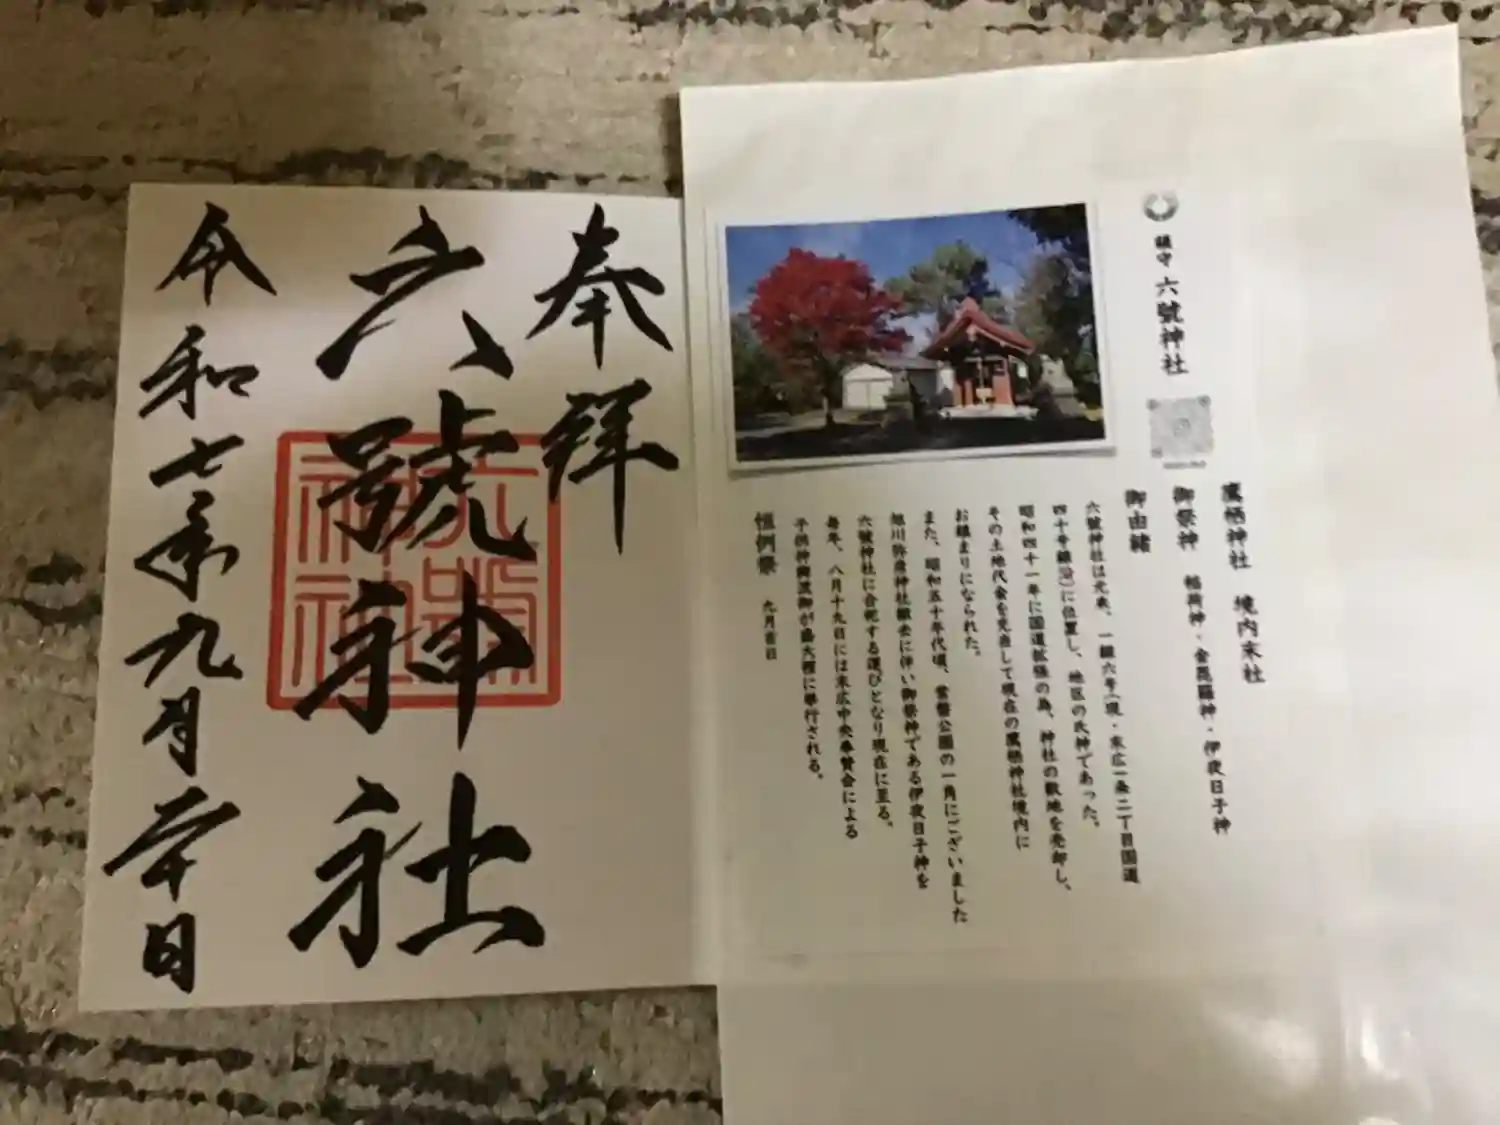 奉拝
六號神社
令和七年九月二十日
六號神社
鎮守 六號神社
鷹栖神社 境内末社
御祭神 稲荷神・金毘羅神・伊夜日子神
御由緒
六號神社は元来、一線六号(現・末広一条二丁目国道
四十号線沿)に位置し、地区の氏神であった。
昭和四十一年に国道拡張の為、神社の敷地を売却し、
その土地代金を充当して現在の鷹栖神社境内に
お鎮まりになられた。
また、昭和五十年代頃、常磐公園の一角にございました
旭川弥彦神社撤去に伴い御祭神である伊夜日子神を
六號神社に合祀する運びとなり現在に至る。
毎年、八月十九日には末広中央奉賛会による
子供神輿渡御が盛大裡に斎行される。
恒例祭 九月首日